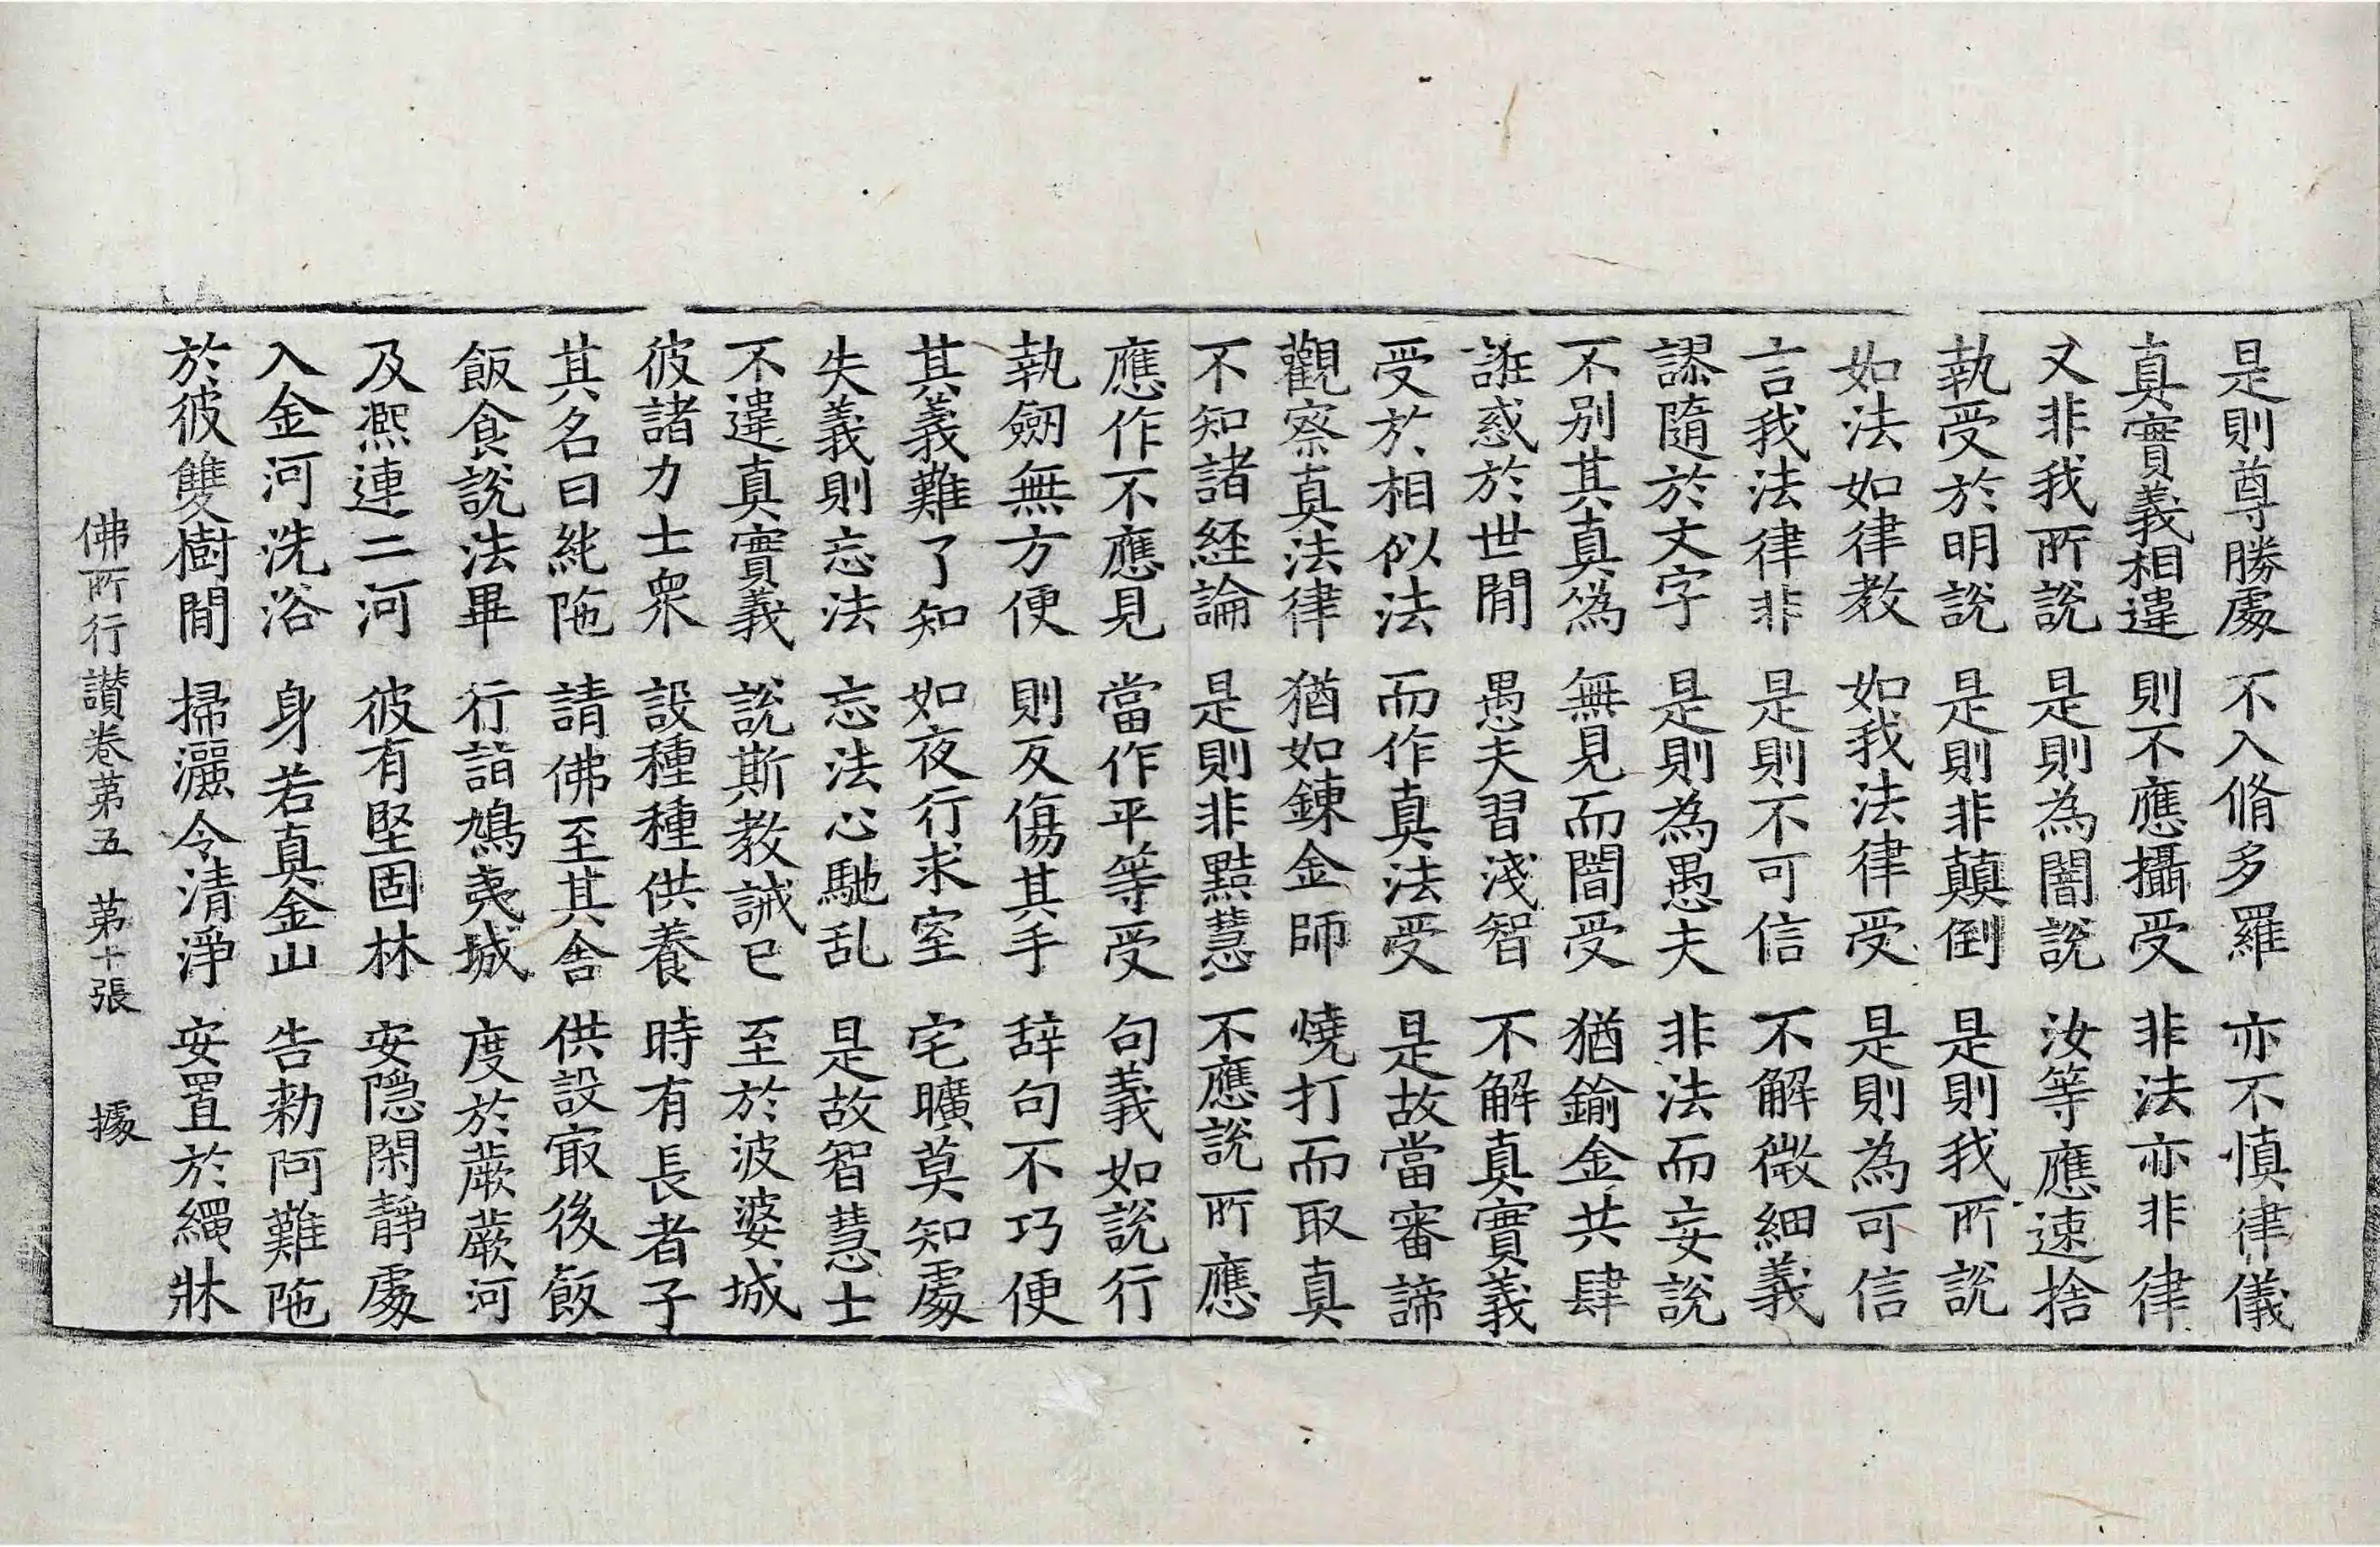 是則尊勝處　不入脩多羅　亦不慎律儀
真實義相違　則不應攝受　非法亦非律
又非我所說　是則為闇說　汝等應速捨
執受於明說　是則非顛倒　是則我所說
如法如律教　如我法律受　是則為可信
言我法律非　是則不可信　不解微細義
謬隨於文字　是則為愚夫　非法而妄說
不別其真偽　無見而闇受　猶鍮金共肆
誑惑於世間　愚夫習淺智　不解真實義
受於相似法　而作真法受　是故當審諦
觀察真法律　猶如鍊金師　燒打而取真
不知諸経論　是則非黠慧　不應說所應
應作不應見　當作平等受　句義如說行
執劒無方便　則反傷其手　辞句不巧便
其義難了知　如夜行求室　宅曠莫知處
失義則忘法　忘法心馳乱　是故智慧士
不違真實義　說斯教誡已　至於波婆城
彼諸力士眾　設種種供養　時有長者子
其名曰純陁　請佛至其舍　供設㝡後飯
飯食說法畢　行詣鳩夷城　度於蕨蕨河
及熈連二河　彼有堅固林　安隱閑靜處
入金河洗浴　身若真金山　告勑阿難陁
於彼雙樹間　掃灑令清淨　安置於繩牀
佛所行讃卷苐五　苐十張　據